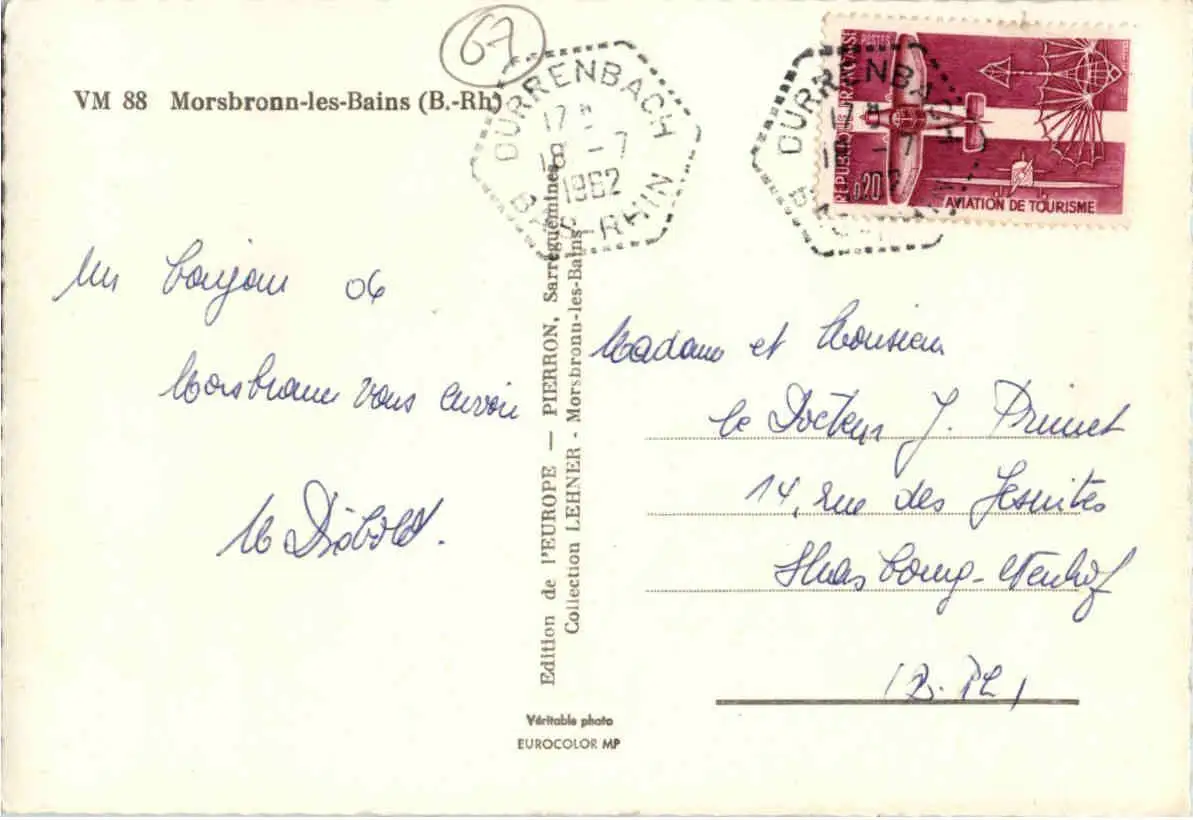 67
VM 88 Morsbronn-les-Bains (B.-Rh)
DURRENBACH
17 H
18 - 7
1962
BAS-RHIN
DURRENBACH
17 H
18 - 7
BAS-RHIN
REPUBLIQUE FRANÇAISE
POSTES
0,20
AVIATION DE TOURISME
Un bonjour de
Morsbronn vous envoie
Diebold.
Edition de l'EUROPE — PIERRON, Sarreguemines
Collection LEHNER - Morsbronn-les-Bains
Véritable photo
EUROCOLOR MP
Madame et Monsieur
le Docteur J. Prunet
14, rue des Jesuites
Strasbourg-Neuhof
(B. Rh)